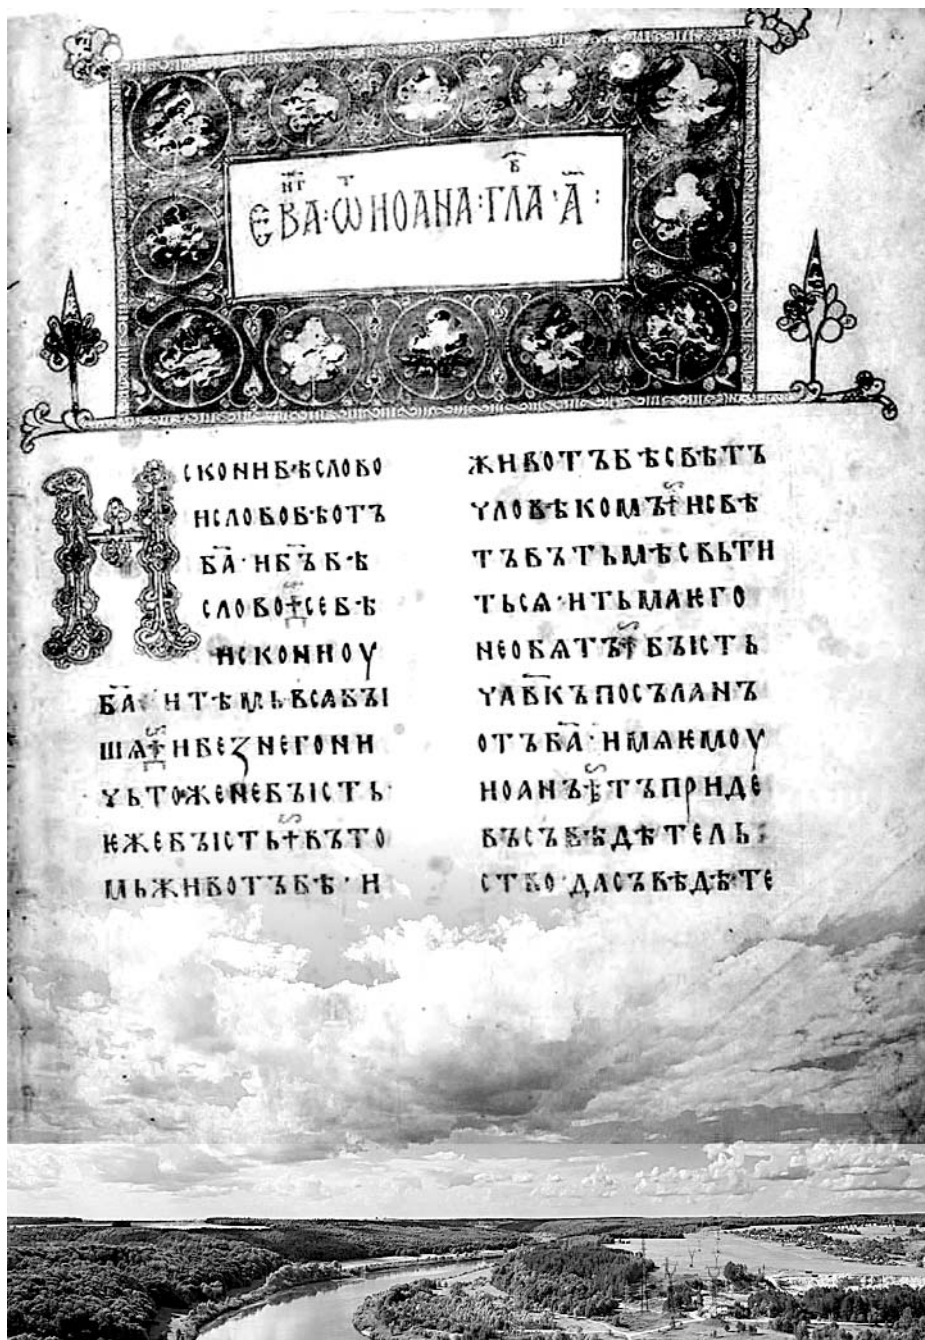 ЕВАНГ · Ѿ ИОАНА · ГЛАВ · А҃ :
ИСКОНИ БѢ СЛОВО
И СЛОВО БѢ ОТЪ
Б҃А · И Б҃Ъ БѢ
СЛОВО ⁘ СЕ БѢ
ИСКОНИ ОУ
Б҃А · И ТѢМЬ ВСѦ БЫ
ШѦ ⁘ И БЕЗ НЕГО НИ
ЧЬТОЖЕ НЕ БЪІСТЬ ·
ѤЖЕ БЪІСТЬ ⁘ ВЪ ТО
МЬ ЖИВОТЪ БѢ · И
ЖИВОТЪ БѢ СВѢТЪ
ЧЛОВѢКОМЪ ⁘ И СВѢ
ТЪ ВЪ ТЬМѢ СВЬТИ
ТЬСѦ · И ТЬМА ѤГО
НЕ ОБѦТЪ ⁘ БЪІСТЬ
ЧЛ҃ВКЪ ПОСЪЛАНЪ
ОТЪ Б҃А · ИМѦ ѤМОУ
ИОАНЪ ⁘ ТЪ ПРИДЕ
ВЪ СЪВѢДѢТЕЛЬ
СТВО · ДА СЪВѢДѢТЕ